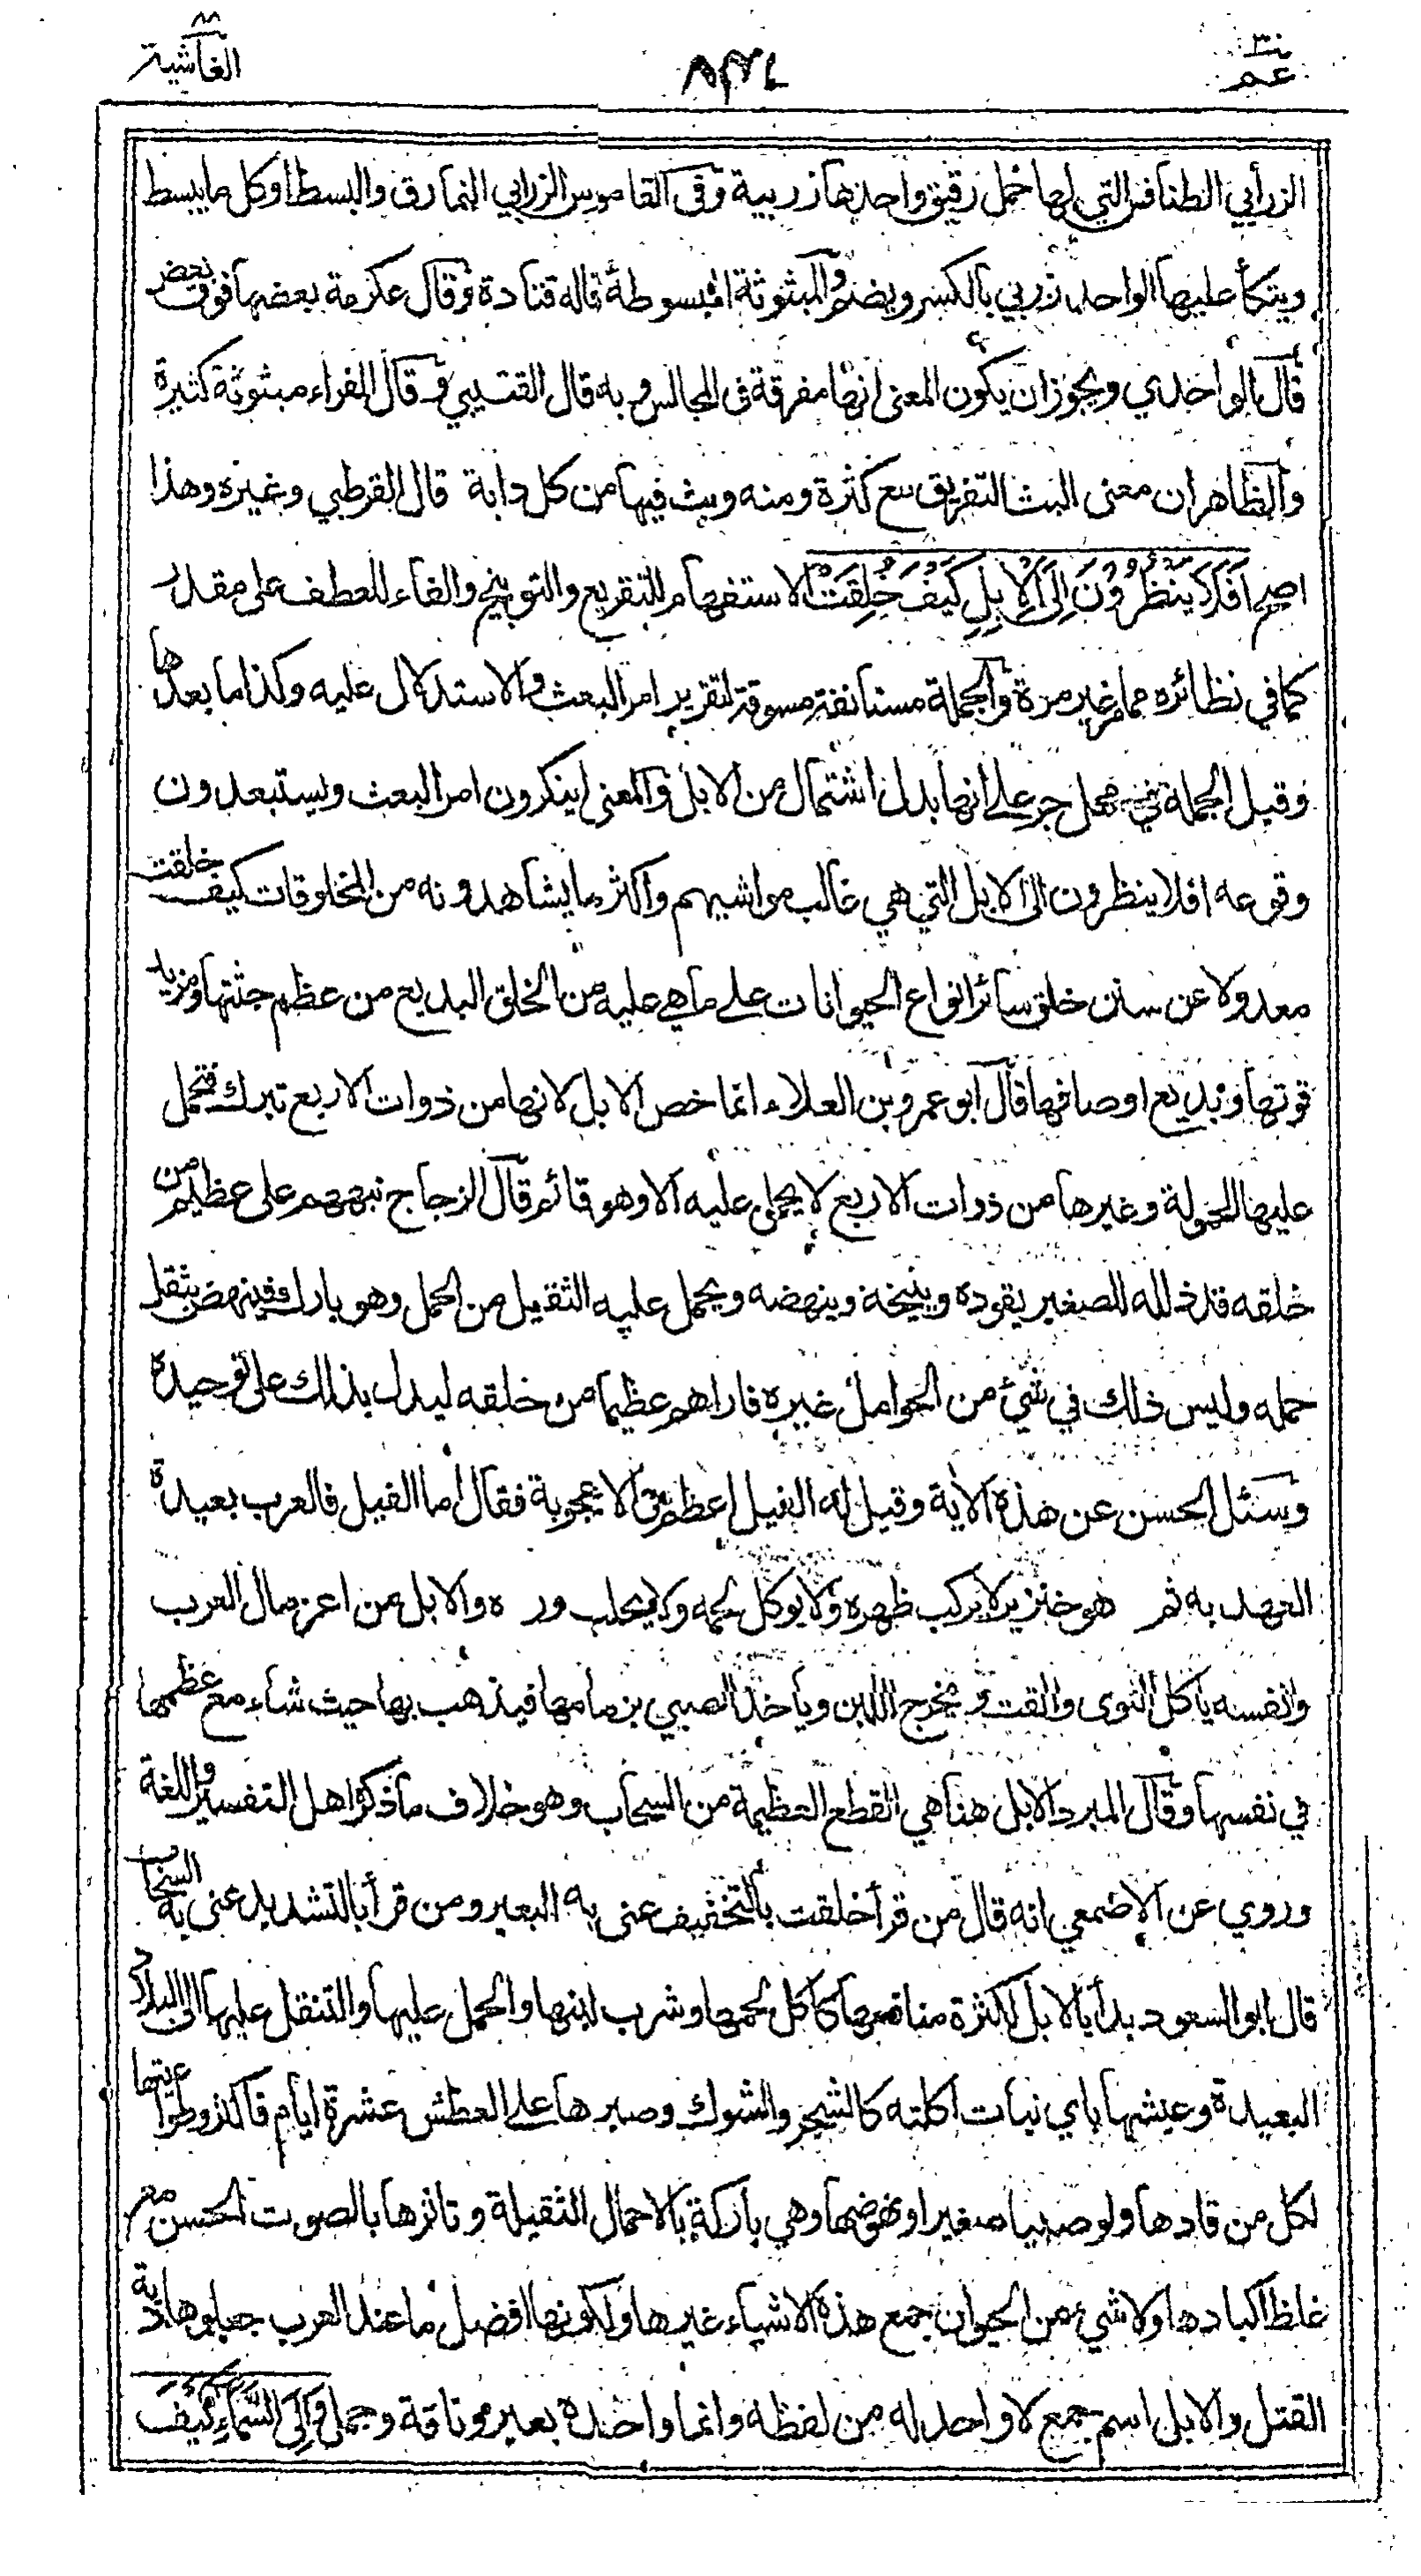 ٣٠ عم
٨٨ الغاشية
الزرابي الطنافس التي لها خمل رقيق واحدها زربية وفي القاموس الزرابي النمارق والبسط او كل ما يبسط
ويتكأ عليها الواحد زربي بالكسر ويضم والمبثوثة المبسوطة قاله قتادة وقال عكرمة بعضها فوق بعض
قال الواحدي ويجوز ان يكون المعنى انها مفرقة في المجالس وبه قال القتيبي وقال الفراء مبثوثة كثيرة
والظاهر ان معنى البث التفريق مع كثرة ومنه وبث فيها من كل دابة قال القرطبي وغيره وهذا
اصح اَفَلَا يَنْظُرُوْنَ اِلَى الْاِبِلِ كَيْفَ خُلِقَتْ الاستفهام للتقريع والتوبيخ والفاء للعطف على مقدر
كما في نظائره مما مر غير مرة والجملة مستانفة مسوقة لتقرير امر البعث والاستدلال عليه وكذا ما بعدها
وقيل الجملة في محل جر على انها بدل اشتمال من الابل والمعنى اينكرون امر البعث ويستبعدون
وقوعه افلا ينظرون الى الابل التي هي غالب مواشيهم واكثر ما يشاهدونه من المخلوقات كيف خلقت
معدولا عن سنن خلق سائر انواع الحيوانات على ما هي عليه من الخلق البديع من عظم جثتها ومزيد
قوتها وبديع اوصافها قال ابو عمرو بن العلاء انما خص الابل لانها من ذوات الاربع تبرك فتحمل
عليها الحمولة وغيرها من ذوات الاربع لا يحمل عليه الا وهو قائم قال الزجاج نبههم على عظيم من
خلقه قد ذلله للصغير يقوده وينيخه وينهضه ويحمل عليه الثقيل من الحمل وهو بارك فينهض بثقل
حمله وليس ذلك في شيء من الحوامل غيره فاراهم عظيما من خلقه ليدل بذلك على توحيده
وسئل الحسن عن هذه الآية وقيل له الفيل اعظم في الاعجوبة فقال اما الفيل فالعرب بعيدة
العهد به ثم هو خنزير لا يركب ظهره ولا يوكل لحمه ولا يحلب در ه والابل من اعز مال العرب
وانفسه ياكل النوى والقت ويخرج اللبن وياخذ الصبي بزمامها فيذهب بها حيث شاء مع عظمها
في نفسها وقال المبرد الابل هنا هي القطع العظيمة من السحاب وهو خلاف ما ذكره اهل التفسير واللغة
وروي عن الاصمعي انه قال من قرأ خلقت بالتخفيف عنى به البعير ومن قرأ بالتشديد عنى به السحاب
قال ابو السعود بدأ بالابل لكثرة منافعها كاكل لحمها وشرب لبنها والحمل عليها والتنقل عليها الى البلاد
البعيدة وعيشها باي نبات اكلته كالشجر والشوك وصبرها على العطش عشرة ايام فاكثر وطواعيتها
لكل من قادها ولو صبيا صغيرا ونهوضها وهي باركة بالاحمال الثقيلة وتاثرها بالصوت الحسن مع
غلظ اكبادها ولا شيء من الحيوان جمع هذه الاشياء غيرها ولكونها افضل ما عند العرب جعلوها دية
القتل والابل اسم جمع لا واحد له من لفظه وانما واحده بعير وناقة وجمل وَاِلَى السَّمَآءِ كَيْفَ